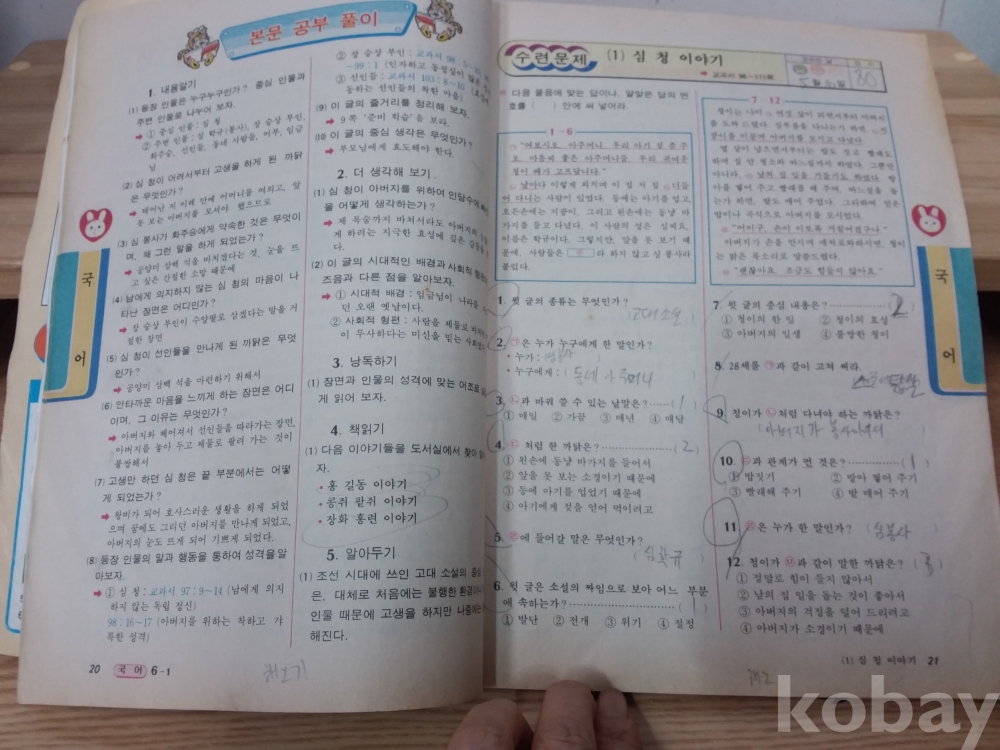 본문 공부 풀이
1. 내용알기
(1) 등장 인물은 누구누구인가? 중심 인물과
주변 인물로 나누어 보자.
➡ ① 중심 인물 : 심 청
② 주변 인물 : 심 학규(봉사), 장 승상 부인,
화주승, 선인들, 동네 사람들, 어부, 임금
님
(2) 심 청이 어려서부터 고생을 하게 된 까닭
은 무엇인가?
➡ 태어난 지 이레 만에 어머니를 여의고, 앞
못 보는 아버지를 모셔야 했으므로
(3) 심 봉사가 화주승에게 약속한 것은 무엇이
며, 왜 그런 말을 하게 되었는가?
➡ 공양미 삼백 석을 바치겠다는 것, 눈을 뜨
고 싶은 간절한 소망 때문에
(4) 남에게 의지하지 않는 심 청의 마음이 나
타난 장면은 어디인가?
➡ 장 승상 부인이 수양딸로 삼겠다는 말을 거
절한 장면
(5) 심 청이 선인들을 만나게 된 까닭은 무엇
인가?
➡ 공양미 삼백 석을 마련하기 위해서
(6) 안타까운 마음을 느끼게 하는 장면은 어디
이며, 그 이유는 무엇인가?
➡ 아버지와 헤어져서 선인들을 따라가는 장면,
아버지를 놓아 두고 제물로 팔려 가는 것이
불쌍해서
(7) 고생만 하던 심 청은 끝 부분에서는 어떻
게 되었는가?
➡ 왕비가 되어 호사스러운 생활을 하게 되었
으며 꿈에도 그리던 아버지를 만나게 되었고,
아버지의 눈도 뜨게 되어 기쁘게 되었다.
(8) 등장 인물의 말과 행동을 통하여 성격을 알
아보자.
➡ ① 심 청 : 교과서 97 : 9~14 (남에게 의지
하지 않는 독립 정신)
98 : 16~17 (아버지를 위하는 착하고 가
륵한 성격)
② 장 승상 부인 : 교과서 98 : 5
~99 : 1 (인자하고 동정심이 많은
③ 선인들 : 교과서 103 : 8~10
동하는 선인들의 착한 마음)
(9) 이 글의 줄거리를 정리해 보자.
➡ 9쪽 '준비 학습'을 보라.
(10) 이 글의 중심 생각은 무엇인가?
➡ 부모님에게 효도해야 한다.
2. 더 생각해 보기
(1) 심 청이 아버지를 위하여 인당수에
을 어떻게 생각하는가?
➡ 제 목숨까지 바쳐서라도 아버지의
게 하려는 지극한 효성에 깊은 감동
다.
(2) 이 글의 시대적인 배경과 사회적 형편
즈음과 다른 점을 알아보자.
➡ ① 시대적 배경 : 임금님이 나라를
던 오랜 옛날이다.
② 사회적 형편 : 사람을 제물로 바쳐
이 무사하다는 미신을 믿는 사회
3. 낭독하기
(1) 장면과 인물의 성격에 맞는 어조로
게 읽어 보자.
4. 책읽기
(1) 다음 이야기들을 도서실에서 찾아
자.
• 홍 길동 이야기
• 콩쥐 팥쥐 이야기
• 장화 홍련 이야기
5. 알아두기
(1) 조선 시대에 쓰인 고대 소설의 중심
은, 대체로 처음에는 불행한 환경
인물 때문에 고생을 하지만 나중에
해진다.
국
어
20 국 어 6-1
수련문제
(1) 심 청 이야기
➡ 교과서 96~111쪽
5월 일
80
* 다음 물음에 맞는 답이나, 알맞은 답의 번
호를 ( ) 안에 써 넣어라.
1 – 6
"여보시오, 아주머니, 우리 아기 젖 좀 주
오. 마음씨 좋은 아주머니들, 우리 귀여운
청이 배가 고프답니다."
날마다 이렇게 외치며 이 집 저 집 더듬
어 다니는 사람이 있었다. 등에는 아기를 업고,
오른손에는 지팡이, 그리고 왼손에는 동냥 바
가지를 들고 다녔다. 이 사람의 성은 심씨요,
이름은 학규이다. 그렇지만, 앞을 못 보기 때
문에, 사람들은 라 하지 않고 심 봉사라
불렀다.
1. 윗 글의 종류는 무엇인가?
(고대소설)
2. ㉠은 누가 누구에게 한 말인가?
• 누가 : (심봉사)
• 누구에게 : (동네 아주머니)
3. ㉡과 바꿔 쓸 수 있는 낱말은? (1)
① 매일 ② 가끔 ③ 매년 ④ 매달
4. ㉢처럼 한 까닭은? (2)
① 왼손에 동냥 바가지를 들어서
② 앞을 못 보는 소경이기 때문에
③ 등에 아기를 업었기 때문에
④ 아기에게 젖을 얻어 먹이려고
5. ㉣에 들어갈 말은 무엇인가?
(심학규)
6. 윗 글은 소설의 짜임으로 보아 어느 부분
에 속하는가? (1)
① 발단 ② 전개 ③ 위기 ④ 절정
7 – 12
청이는 나이 여섯 살이 되면서부터 아버지
를 도와 드렸다. 심부름을 다니는가 하면,
아니라, 남의 집 일을 거들기도 하였다.
아를 찧어 주고 빨래를 해 주며, 바느질을 돕
는가 하면, 밥도 매어 주었다. 그리하여 얻은
쌀이나 곡식으로 아버지를 모시었다.
"아이구, 손이 이토록 거칠어졌구나."
아버지가 손을 만지며 애처로와하시면, 청이
는 밝은 목소리로 말씀드렸다.
"괜찮아요. 조금도 힘들지 않아요."
7. 윗 글의 중심 내용은? (2)
① 청이의 한 일 ② 청이의 효성
③ 아버지의 일생 ④ 불쌍한 청이
8. 28세를 ㉠과 같이 고쳐 써라.
9. 청이가 ㉡처럼 다녀야 하는 까닭은?
10. ㉢과 관계가 먼 것은? (1)
① 밥짓기 ② 방아 찧어 주기
③ 빨래해 주기 ④ 밭 매어 주기
11. ㉣은 누가 한 말인가? (심봉사)
12. 청이가 ㉤과 같이 말한 까닭은? (3)
① 정말로 힘이 들지 않아서
② 남의 집 일을 돕는 것이 좋아서
③ 아버지의 걱정을 덜어 드리려고
④ 아버지가 소경이기 때문에
국
어
(1) 심 청 이야기 21
kobay